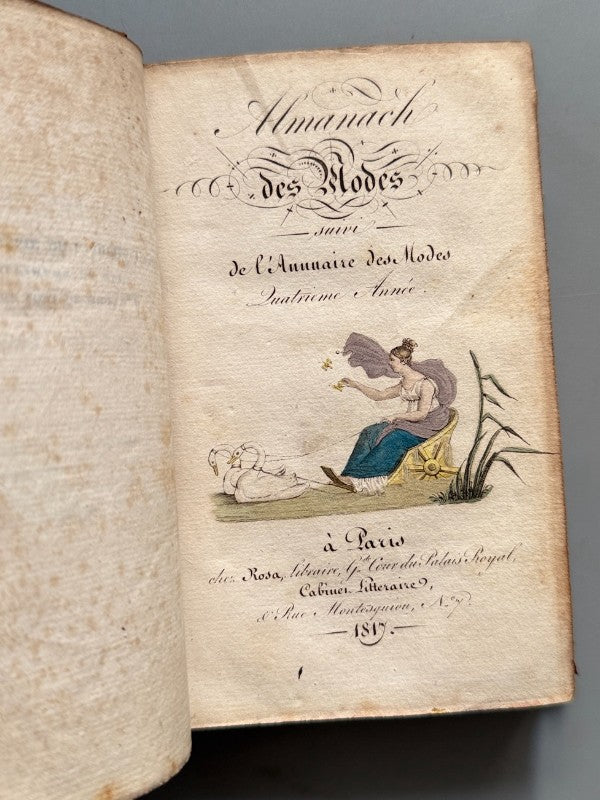 Almanach
des Modes
suivi
de l'Annuaire des Modes
Quatrième Année.
à Paris
chez Rosa, Libraire, Gde Cour du Palais Royal,
Cabinet Litteraire,
& Rue Montesquiou, No 7.
1817.